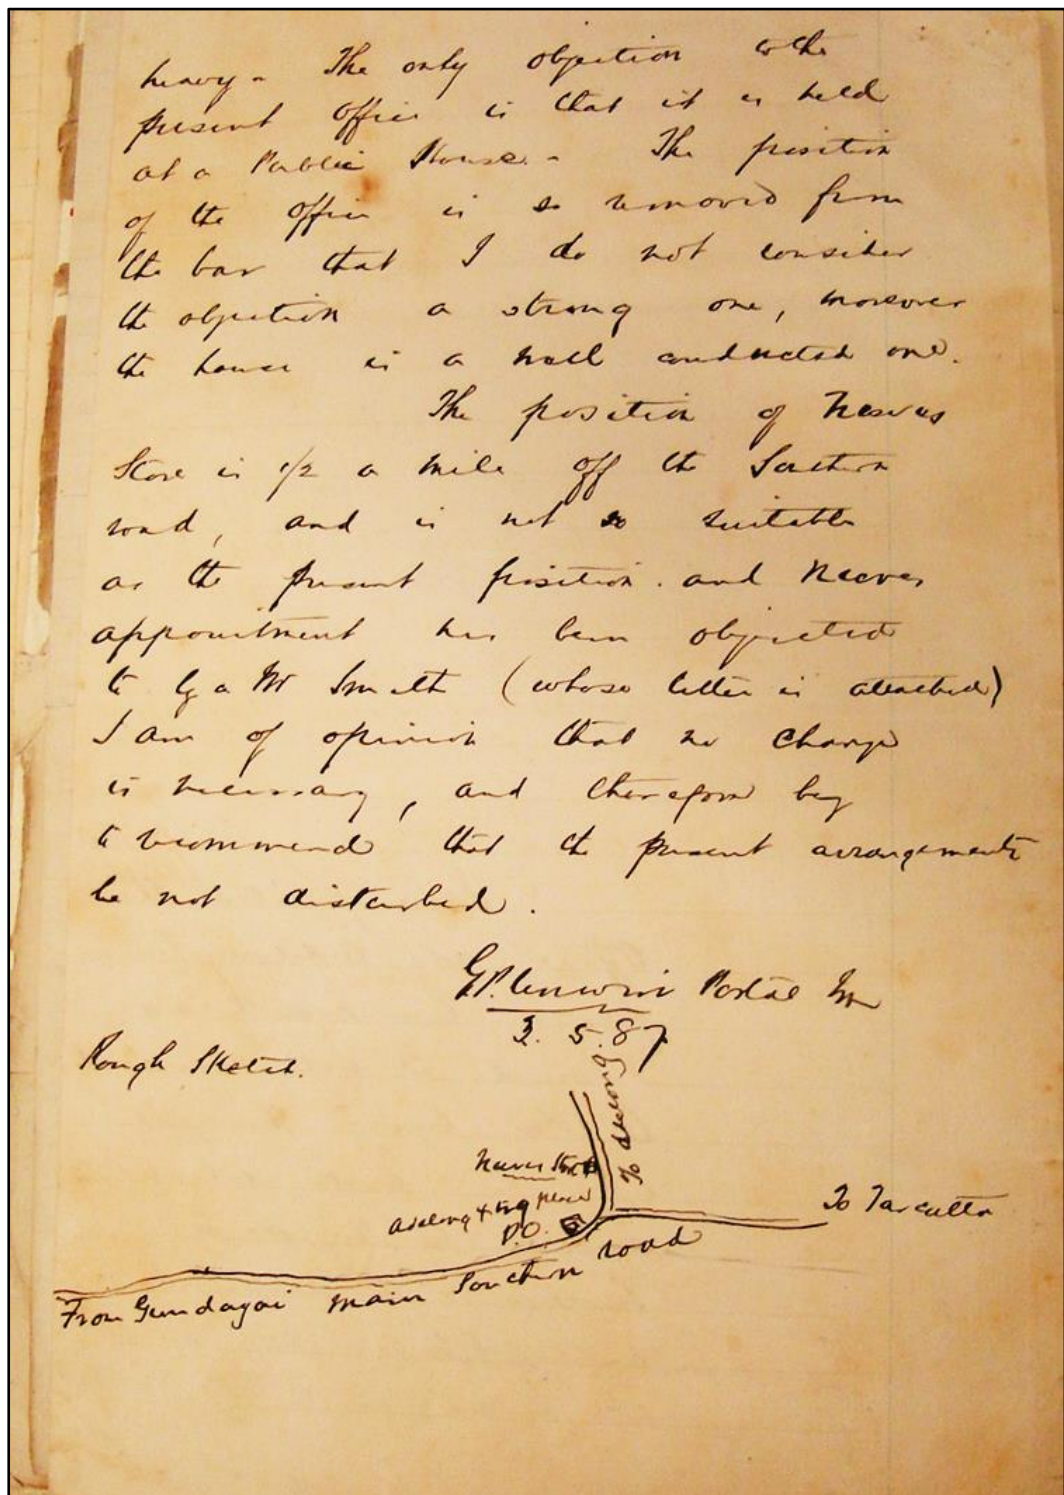 heavy - The only objection to the
present office is that it is held
at a Public House. - The position
of the office is so removed from
the bar that I do not consider
the objection a strong one, moreover
the house is a well conducted one.
The position of Neeves
Store is 1/2 a mile off the Southern
road, and is not so suitable
as the present position. and Neeves
appointment has been objected
to by a Mr Smith (whose letter is attached)
I am of opinion that no change
is necessary, and therefore beg
to recommend that the present arrangements
be not disturbed.
Unwin Postal
3. 5. 87
Rough Sketch.
To Adelong
Neeves Store
Adelong Xing place
P.O.
To Tarcutta
From Gundagai main Southern road